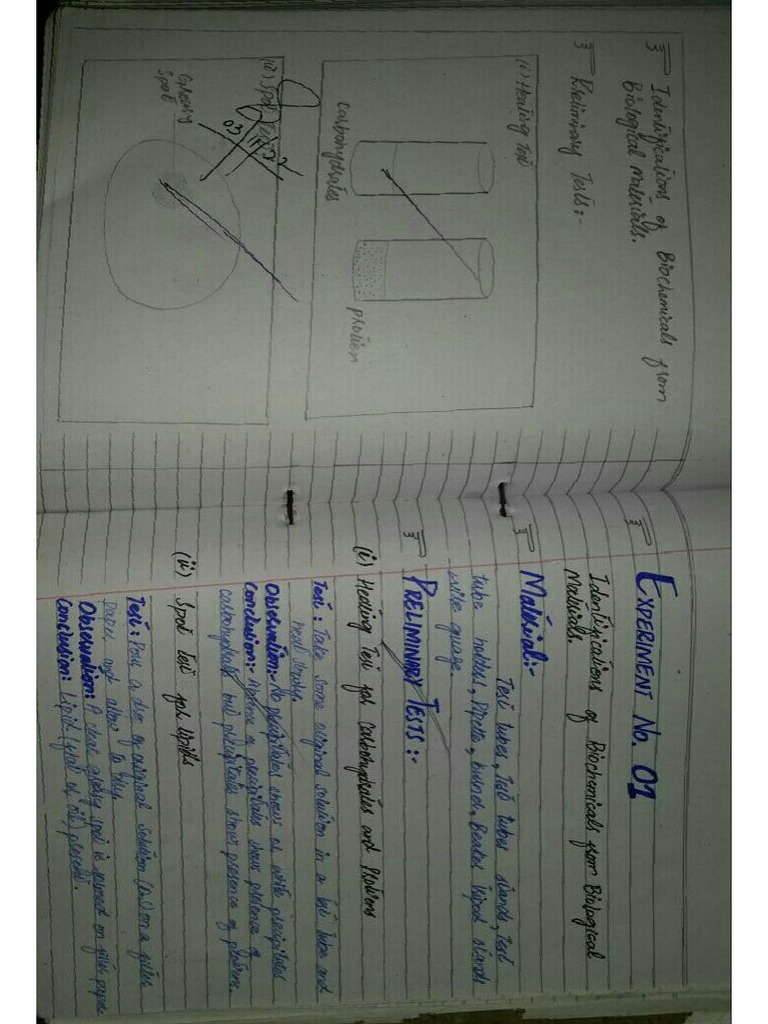 Identifications of Biochemicals from
Biological Materials.
Preliminary Tests:-
(i) Heating Test
carbohydrates
protien
(ii) Spot Test
03/11/22
Greesy
Spot
EXPERIMENT No. 01
Identifications of Biochemicals from Biological
Materials.
Material:-
Test tubes, Test tubes stands, Test
tube holders, Pipette, burner, Beaker tripod stands
wire guaze.
PRELIMINARY TESTS:-
(i) Heating Test for Carbohydrates and Protiens
Test: Take some original solution in a test tube and
heat slowly.
Observation:- No precipitates shows or white precipitates
Conclusion:- Absence of precipitates shows presence of
carbohydrate but precipitates shows presence of protiens.
(ii) Spot Test for Lipids
Test: Pour a drop of original solution (O.S) on a filter
paper and allow to dry.
Observation: A clear greesy spot is formed on filter paper
Conclusion: Lipid (fat or oil) present.